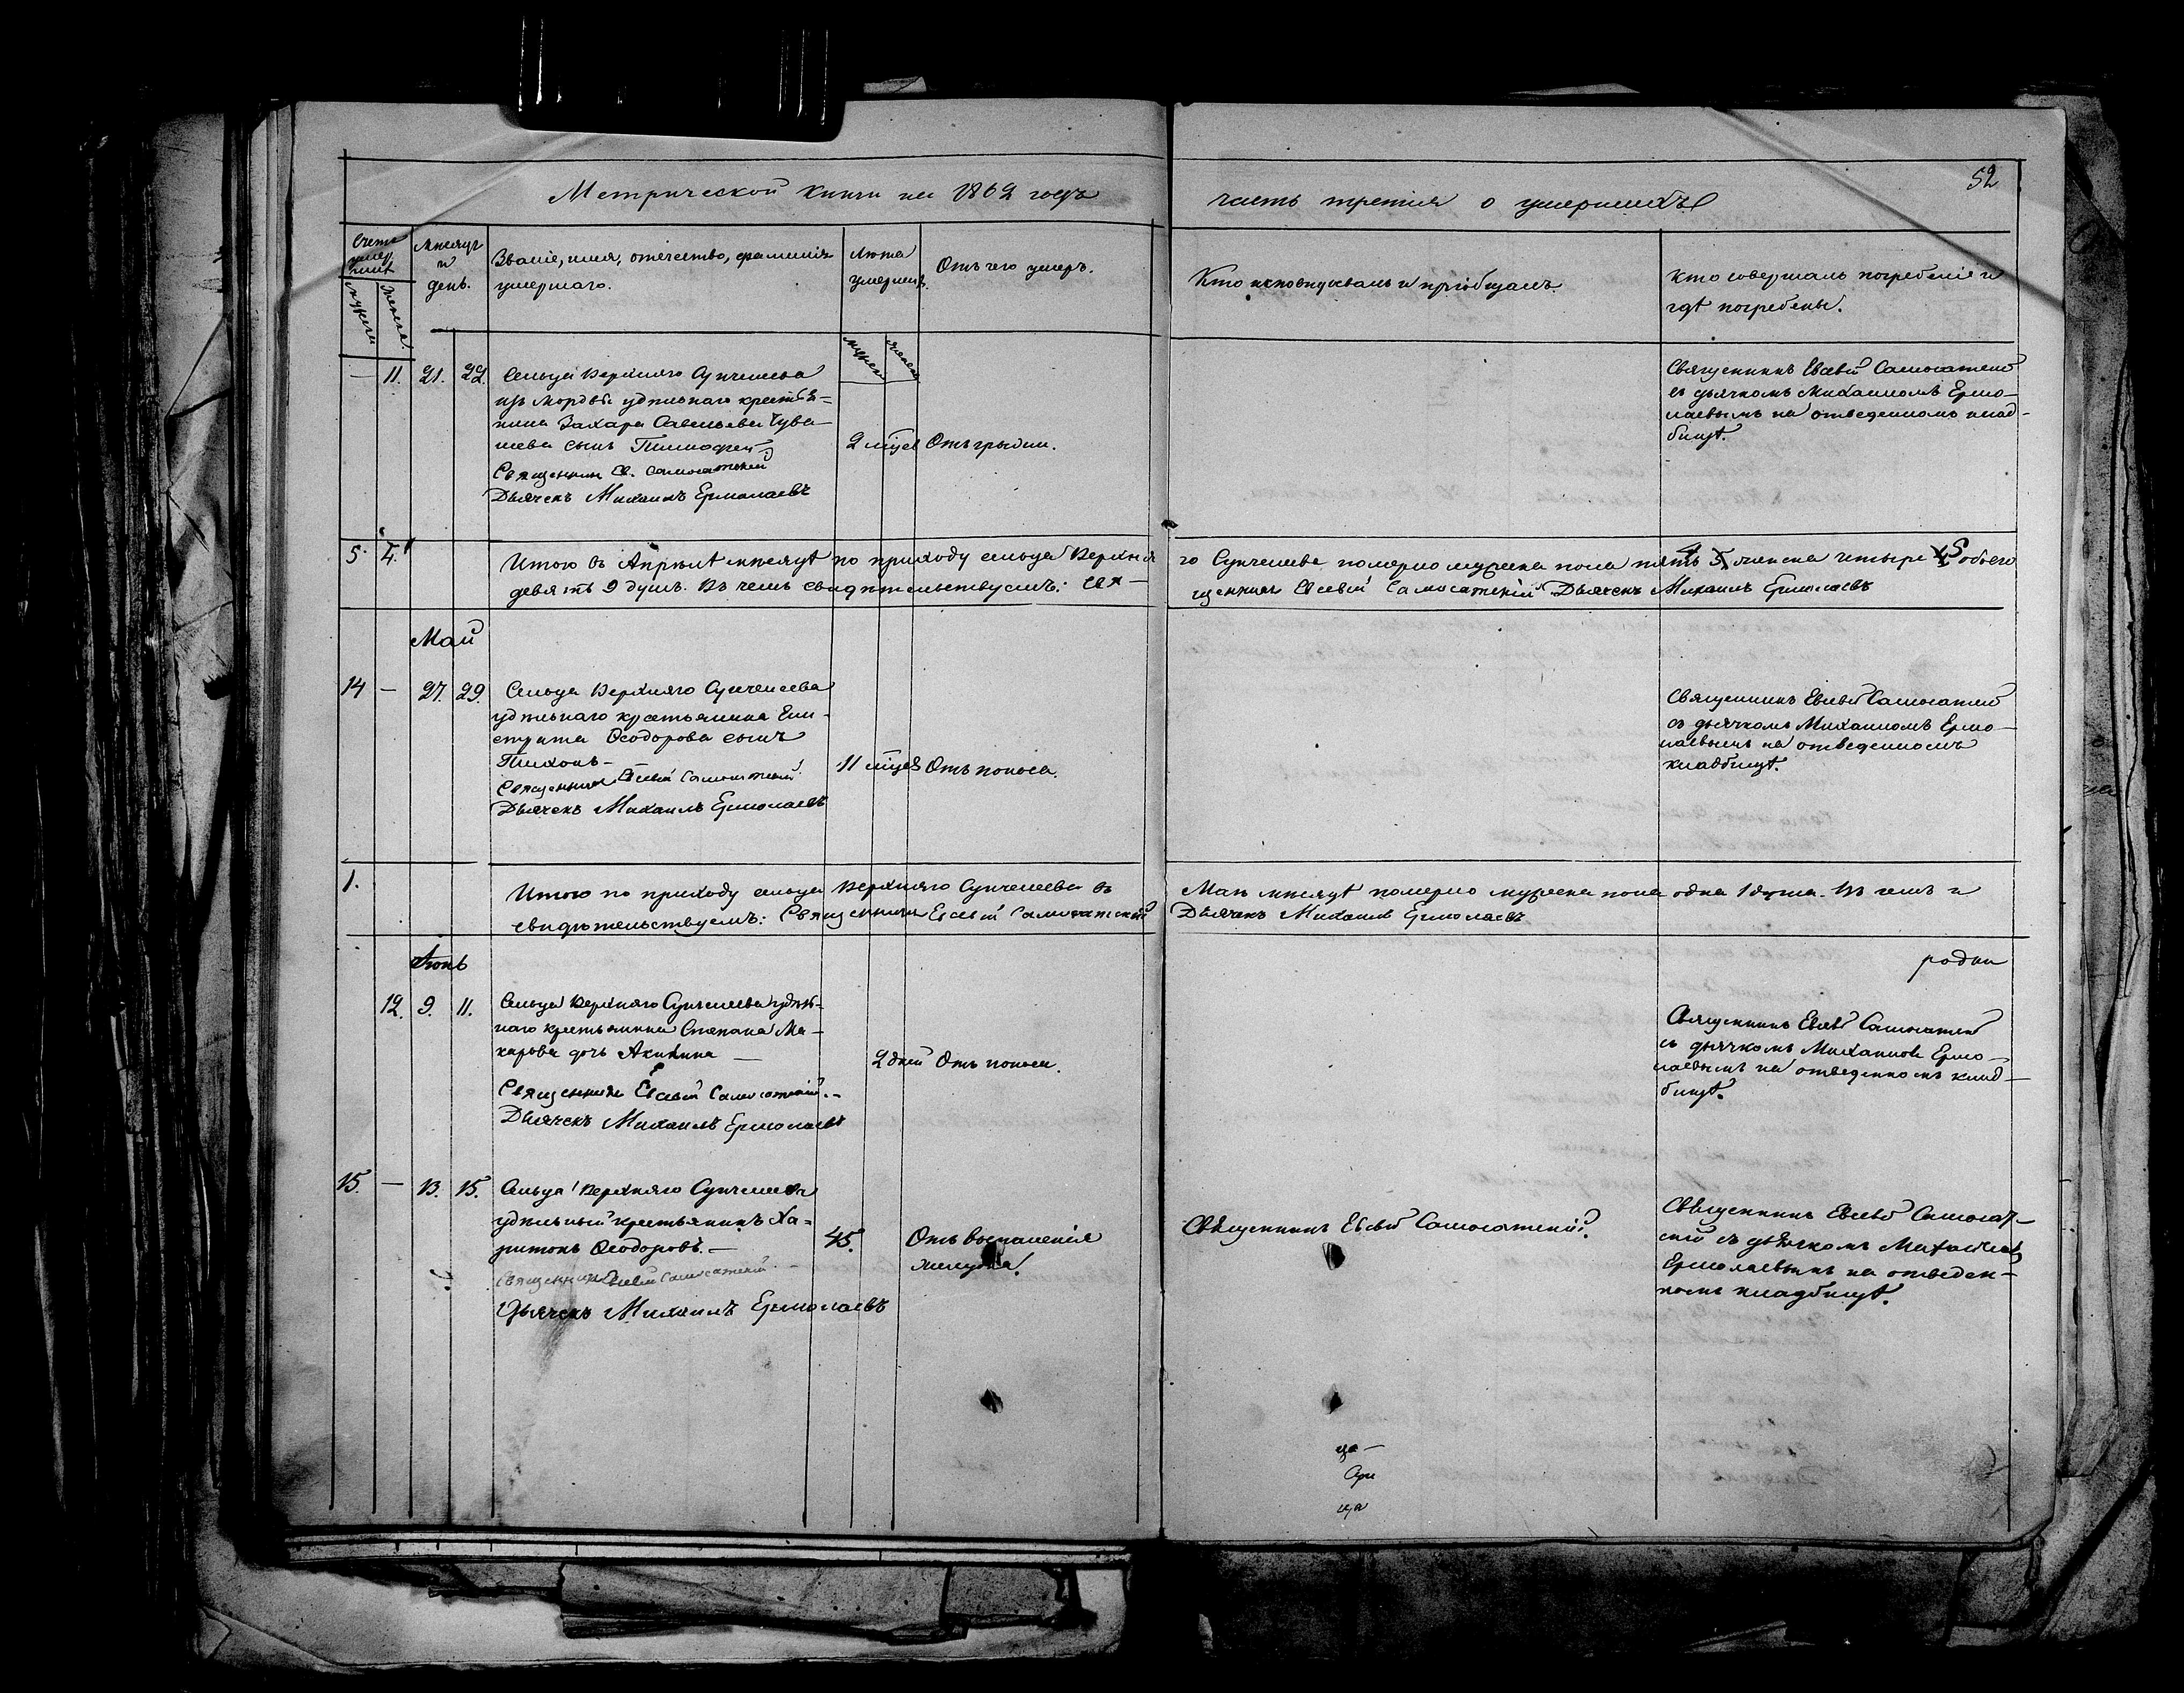 Метрической книги на 1862 годъ
часть третія о умершихъ
52
Счетъ умер,шихъ
мужеска
женска.
Мѣсяцъ и день.
Званіе, имя, отечество, фамилія
умершаго.
Лѣта
умершаго.
мужеск
женск
Отъ чего умеръ.
Кто исповѣдывалъ и пріобщалъ.
Кто совершалъ погребеніе и
гдѣ погребены.
— 11. 21. 22.
Сельца Верхняго Сунчелеева
изъ мордвы удѣльнаго крестья=
нина Захара Савельева Чува-
шева сынъ Тимофей.
Священникъ Ев. Самосатскій
Дьячекъ Михаилъ Ермолаевъ
2 мѣсяц Отъ грыжи.
Священникъ Евсевій Самосатскій
съ дьячкомъ Михаиломъ Ермо-
лаевымъ на отведенномъ клад-
бищѣ.
5. 4.
Итого въ Апрѣлѣ мѣсяцѣ по приходу сельца Верхня
го Сунчелеева померло мужеска пола пять 4 5 женска четыре 4 5 обоего
девять 9 душъ. Въ чемъ свидѣтельствуемъ: Свя-
щенникъ Евсевій Самосатскій Дьячекъ Михаилъ Ермолаевъ
Май
14 — 27. 29.
Сельца Верхняго Сунчелеева
удѣльнаго крестьянина Ели-
страта Ѳеодорова сынъ
Тихонъ-
Священникъ Евсевій Самосатскій
Дьячекъ Михаилъ Ермолаевъ
11 мѣсяц Отъ поноса.
Священникъ Евсевій Самосатскій
съ дьячкомъ Михаиломъ Ермо-
лаевымъ на отведенномъ
кладбищѣ.
1.
Итого по приходу сельца Верхняго Сунчелеева въ
Маѣ мѣсяцѣ померло мужеска пола одна 1 душа. Въ чемъ и
свидѣтельствуемъ: Священникъ Евсевій Самосатскій
Дьячекъ Михаилъ Ермолаевъ
Іюнь
родки
12. 9. 11.
Сельца Верхняго Сунчелеева удѣль-
наго крестьянина Степана Ма-
карова дочь Акилина —
Священникъ Евсевій Самосатскій.-
Дьячекъ Михаилъ Ермолаевъ
2 дней Отъ поноса.
Священникъ Евсевій Самосатскій
съ дьячкомъ Михаиломъ Ермо-
лаевымъ на отведенномъ клад-
бищѣ.
15. — 13. 15.
Сельца Верхняго Сунчелеева
удѣльный крестьянинъ Ха-
ритонъ Ѳеодоровъ.-
Священникъ Евсевій Самосатскій
Дьячекъ Михаилъ Ермолаевъ
45.
Отъ воспаленія
желудка.
Священникъ Евсевій Самосатскій.
Священникъ Евсевій Самосат-
скій съ дьячкомъ Михаиломъ
Ермолаевымъ на отведен-
номъ кладбищѣ.
ца-
Сун
ца